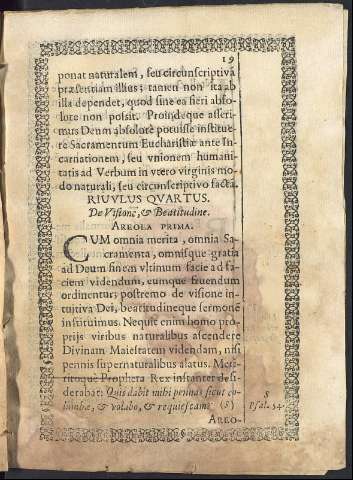 19
ponat naturalem, seu circunscriptivã
præsentiam illius; tamen non ita ab
illa dependet, quod sine ea fieri abso-
lute non possit. Proindeque asseri-
mus Deum absolute potuisse institue-
re Sacramentum Eucharistiæ ante In-
carnationem, seu vnionem humani-
tatis ad Verbum in vtero virginis mo-
do naturali, seu circunscriptivo facta.
RIVULVS QVARTVS.
De Visione, & Beatitudine.
AREOLA PRIMA.
CVM omnia merita, omnia Sa-
cramenta, omnisque gratia
ad Deum finem vltimum facie ad fa-
ciem videndum, eumque fruendum
ordinentur; postremo de visione in-
tuitiva Dei, beatitudineque sermonē
instituimus. Neque enim homo pro-
prijs viribus naturalibus ascendere
Divinam Maiestatem videndam, nisi
pennis supernaturalibus alatus. Me-
ritoque Propheta Rex instanter desi-
derabat: Quis dabit mihi pennas sicut co-
lumbæ, & volabo, & requiescam? (§)
§
Psal. 54.
AREO-